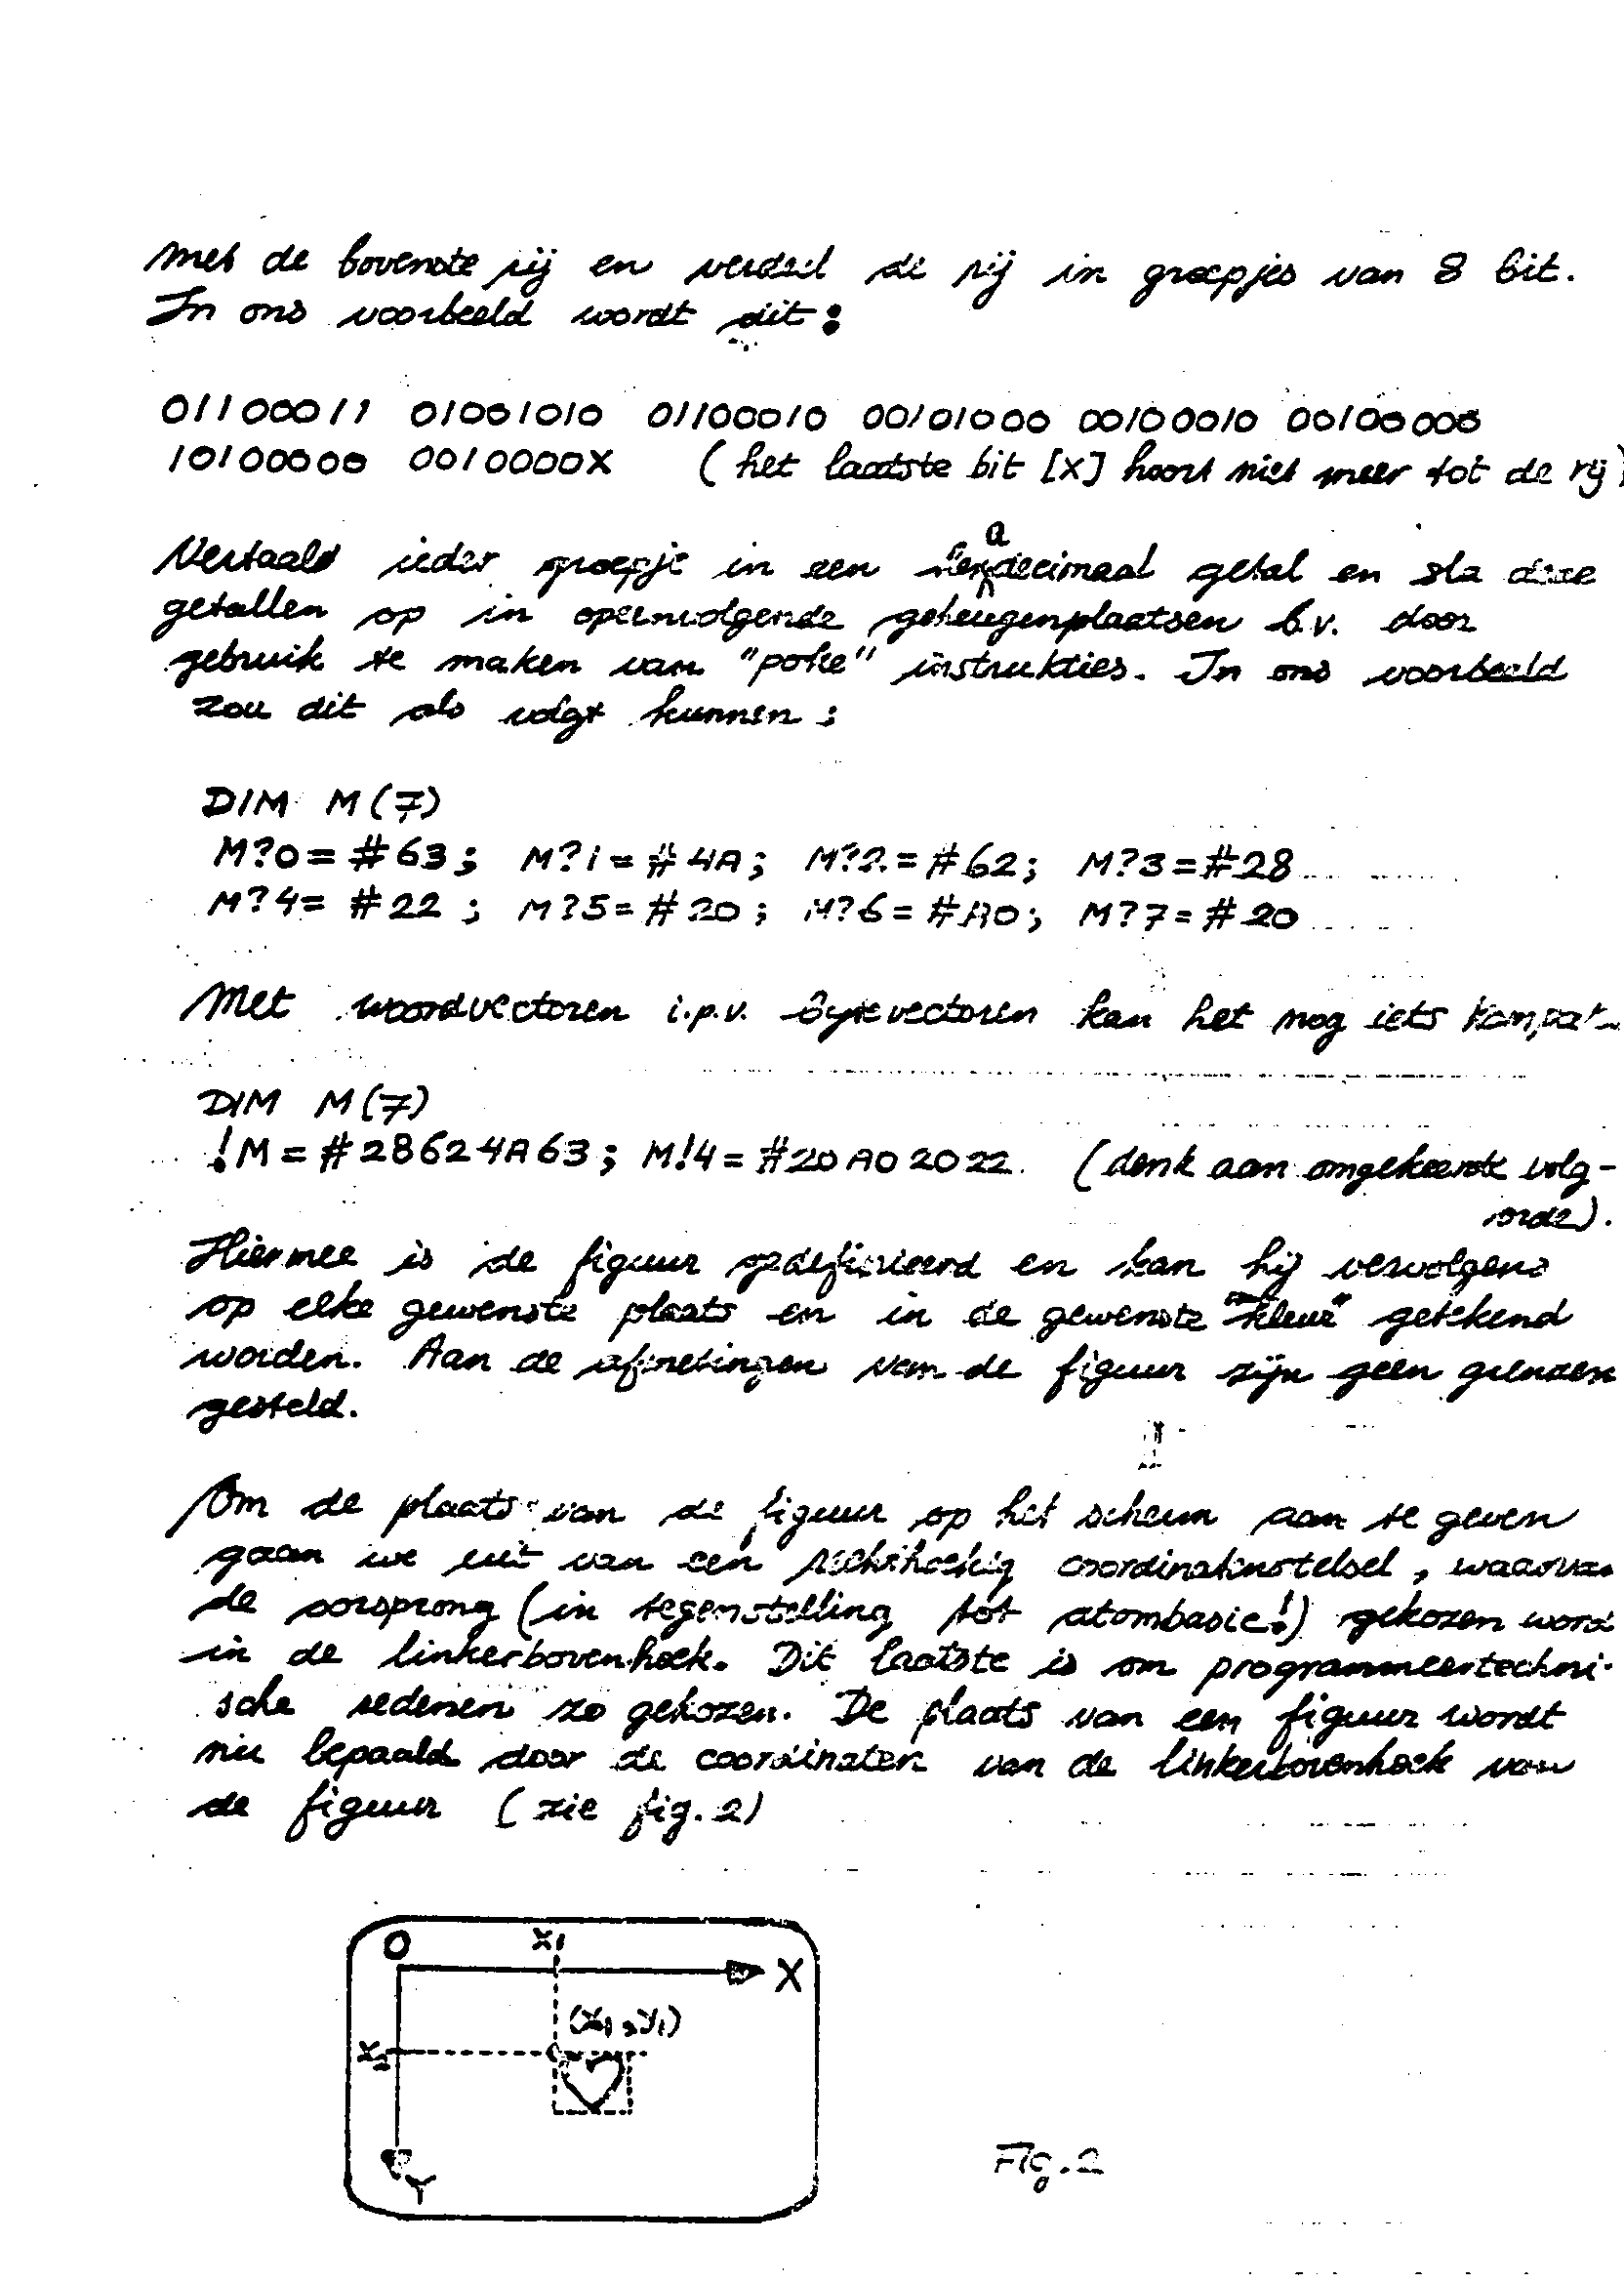 met de bovenste rij en verdeel de rij in groepjes van 8 bit.
In ons voorbeeld wordt dit:
01100011 01001010 01100010 00101000 00100010 00100000
10100000 0010000X (het laatste bit [X] hoort niet meer tot de rij)
Vertaald ieder groepje in een hexadecimaal getal en sla deze
getallen op in opeenvolgende geheugenplaatsen b.v. door
gebruik te maken van "poke" instrukties. In ons voorbeeld
zou dit als volgt kunnen:
DIM M(7)
M?0=#63; M?1=#4A; M?2=#62; M?3=#28
M?4=#22; M?5=#20; M?6=#A0; M?7=#20
Met woordvectoren i.p.v. bytevectoren kan het nog iets
DIM M(7)
!M=#28624A63; M!4=#20A02022 (denk aan omgekeerde volg-
orde).
Hiermee is de figuur gedefinieerd en kan hij vervolgens
op elke gewenste plaats en in de gewenste "kleur" getekend
worden. Aan de afmetingen van de figuur zijn geen grenzen
gesteld.
Om de plaats van de figuur op het scherm aan te geven
gaan we uit van een rechthoekig coordinatenstelsel, waarva
de oorsprong (in tegenstelling tot atombasic!) gekozen word
in de linkerbovenhoek. Dit laatste is om programmeertechni-
sche redenen zo gekozen. De plaats van een figuur wordt
nu bepaald door de coordinaten van de linkerbovenhoek van
de figuur (zie fig. 2)
O X1
X
(X1,Y1)
X2
Y
Fig. 2